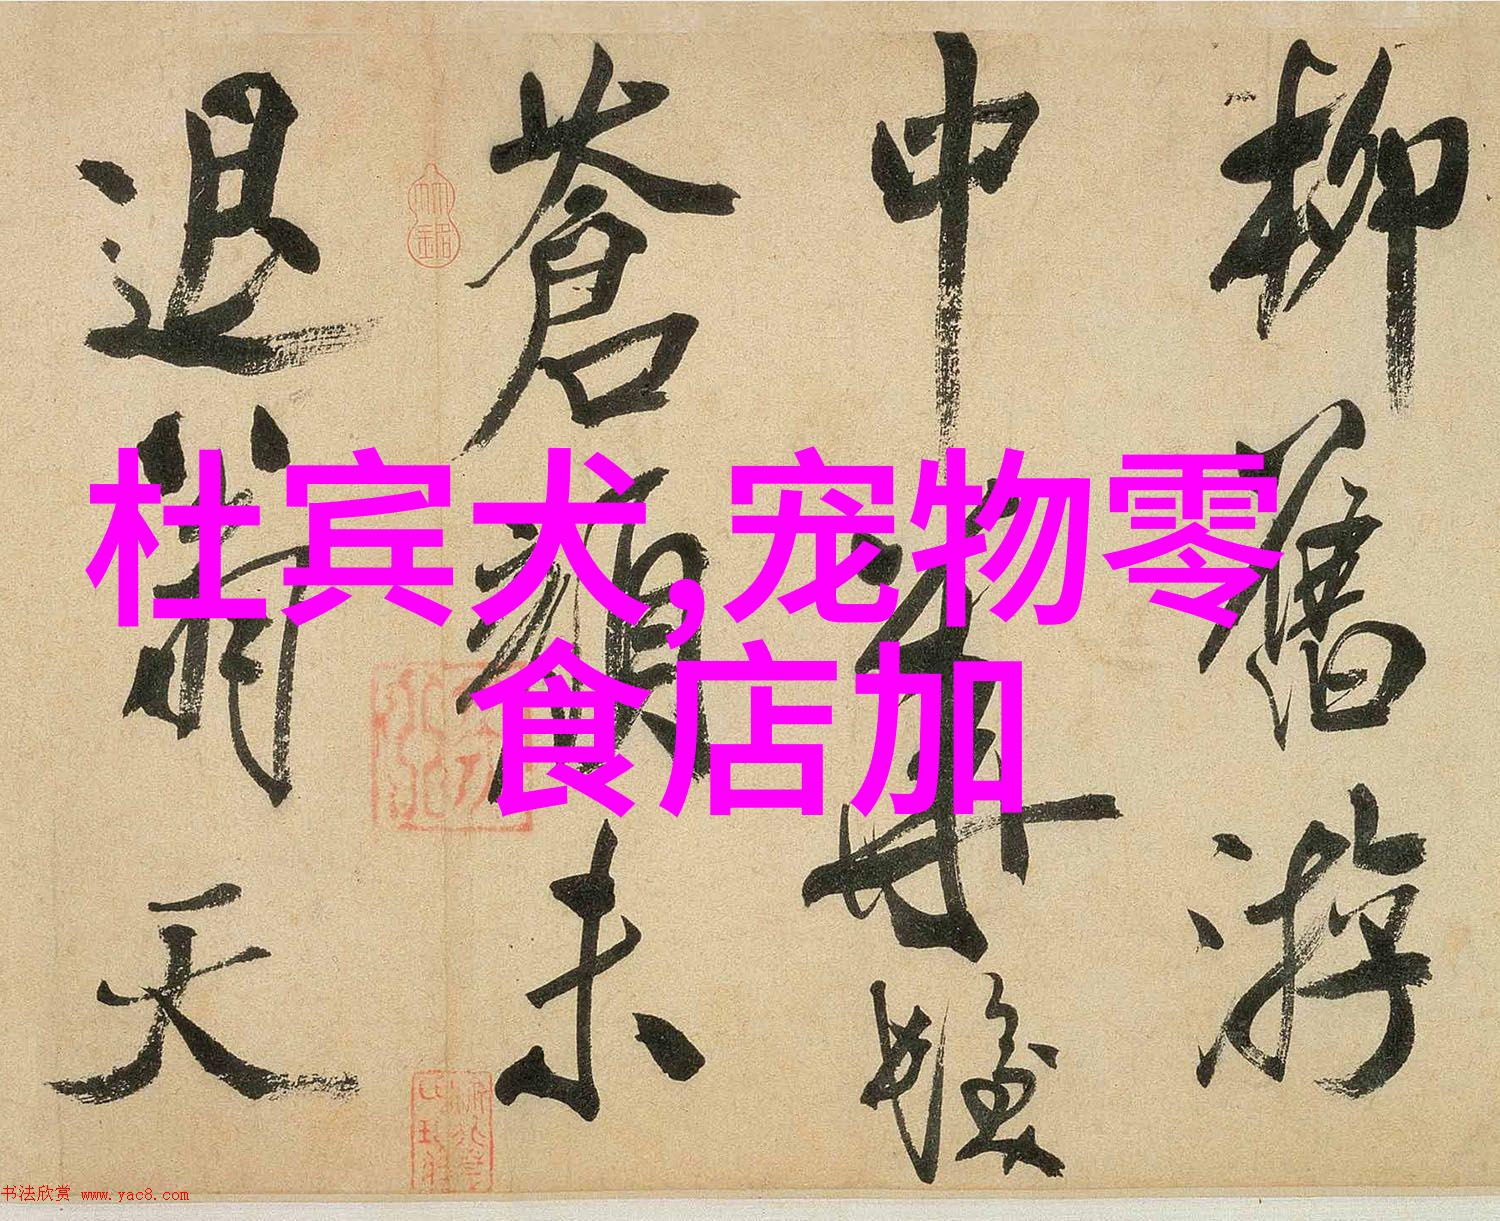 柳舊游
中華髮
蒼顏未
退翁天
杜宾犬,宠物零
食店加
书法欣赏 www.yac8.com